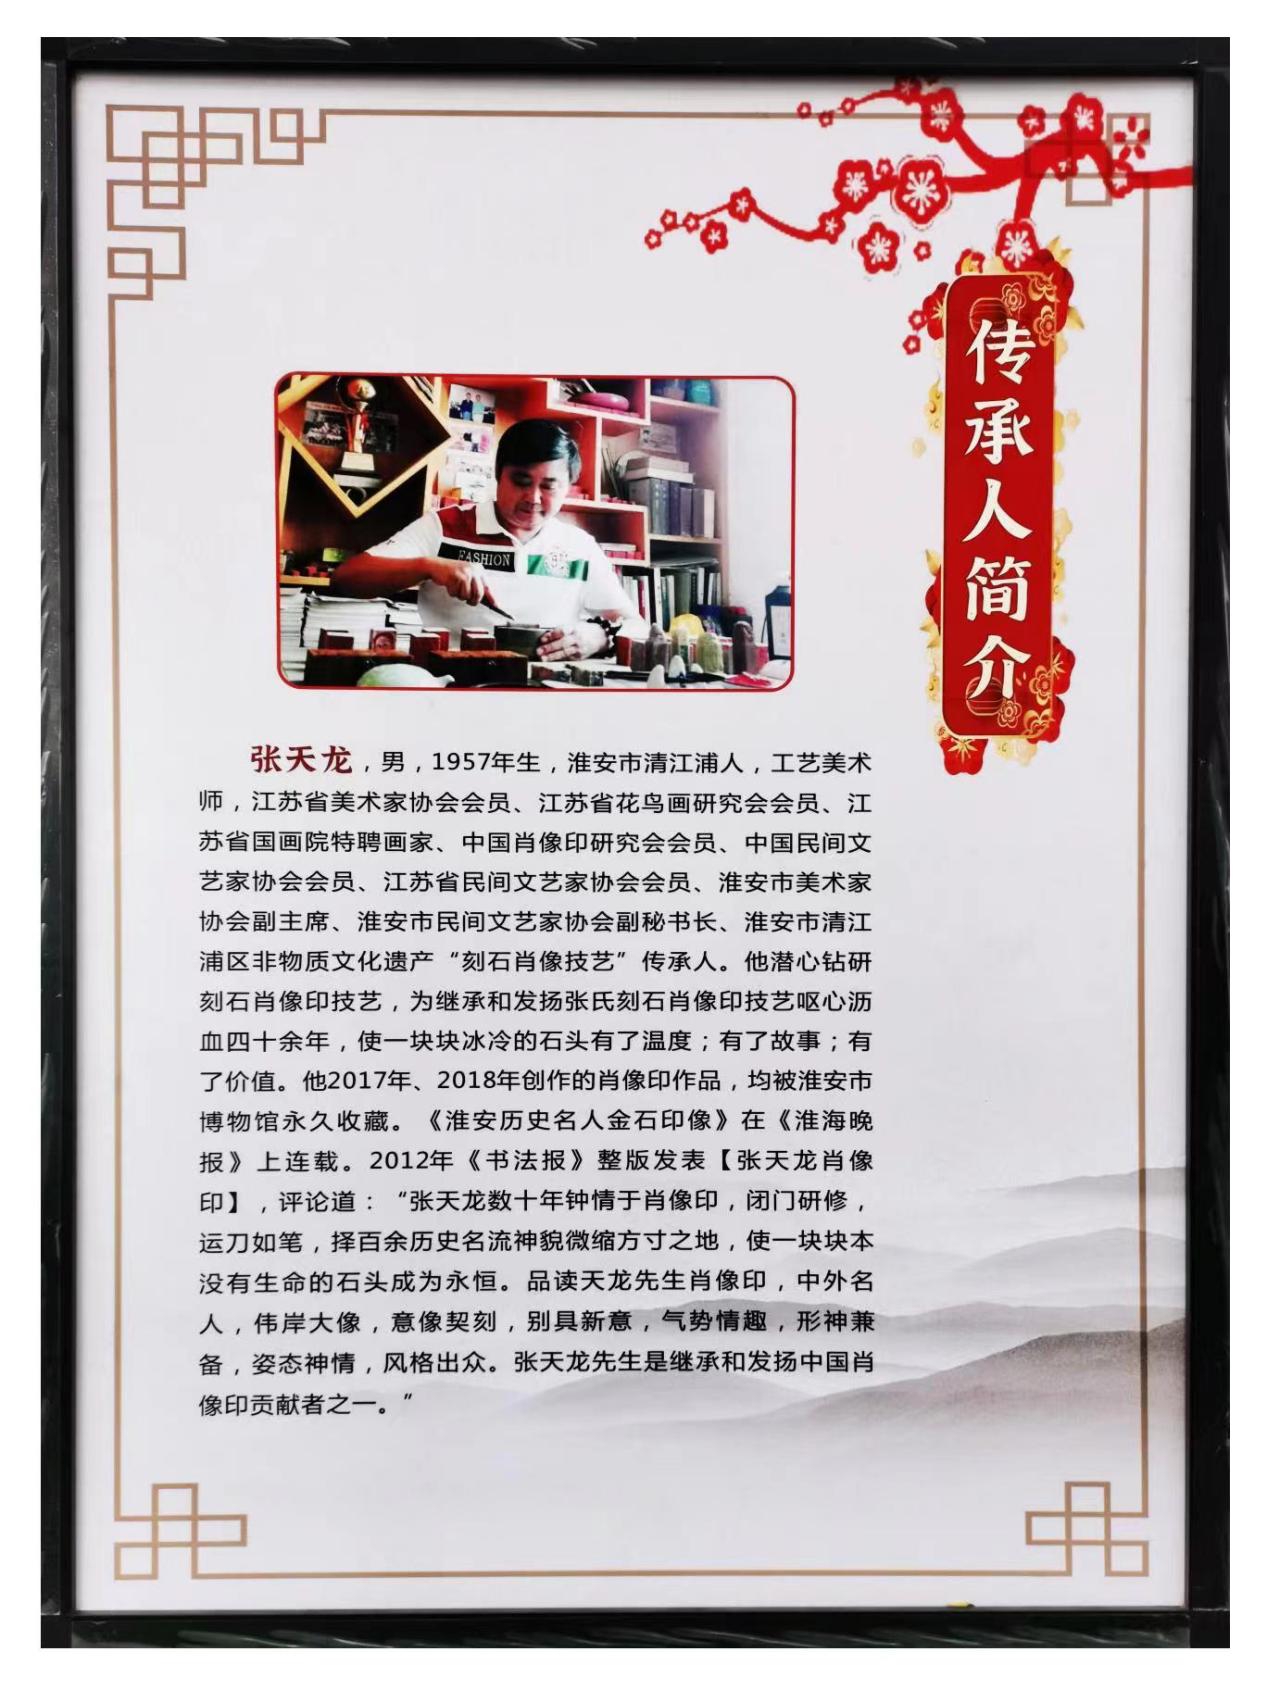 传承人简介
FASHION
张天龙，男，1957年生，淮安市清江浦人，工艺美术
师，江苏省美术家协会会员、江苏省花鸟画研究会会员、江
苏省国画院特聘画家、中国肖像印研究会会员、中国民间文
艺家协会会员、江苏省民间文艺家协会会员、淮安市美术家
协会副主席、淮安市民间文艺家协会副秘书长、淮安市清江
浦区非物质文化遗产“刻石肖像技艺”传承人。他潜心钻研
刻石肖像印技艺，为继承和发扬张氏刻石肖像印技艺呕心沥
血四十余年，使一块块冰冷的石头有了温度；有了故事；有
了价值。他2017年、2018年创作的肖像印作品，均被淮安市
博物馆永久收藏。《淮安历史名人金石印像》在《淮海晚
报》上连载。2012年《书法报》整版发表【张天龙肖像
印】，评论道：“张天龙数十年钟情于肖像印，闭门研修，
运刀如笔，择百余历史名流神貌微缩方寸之地，使一块块本
没有生命的石头成为永恒。品读天龙先生肖像印，中外名
人，伟岸大像，意像契刻，别具新意，气势情趣，形神兼
备，姿态神情，风格出众。张天龙先生是继承和发扬中国肖
像印贡献者之一。”